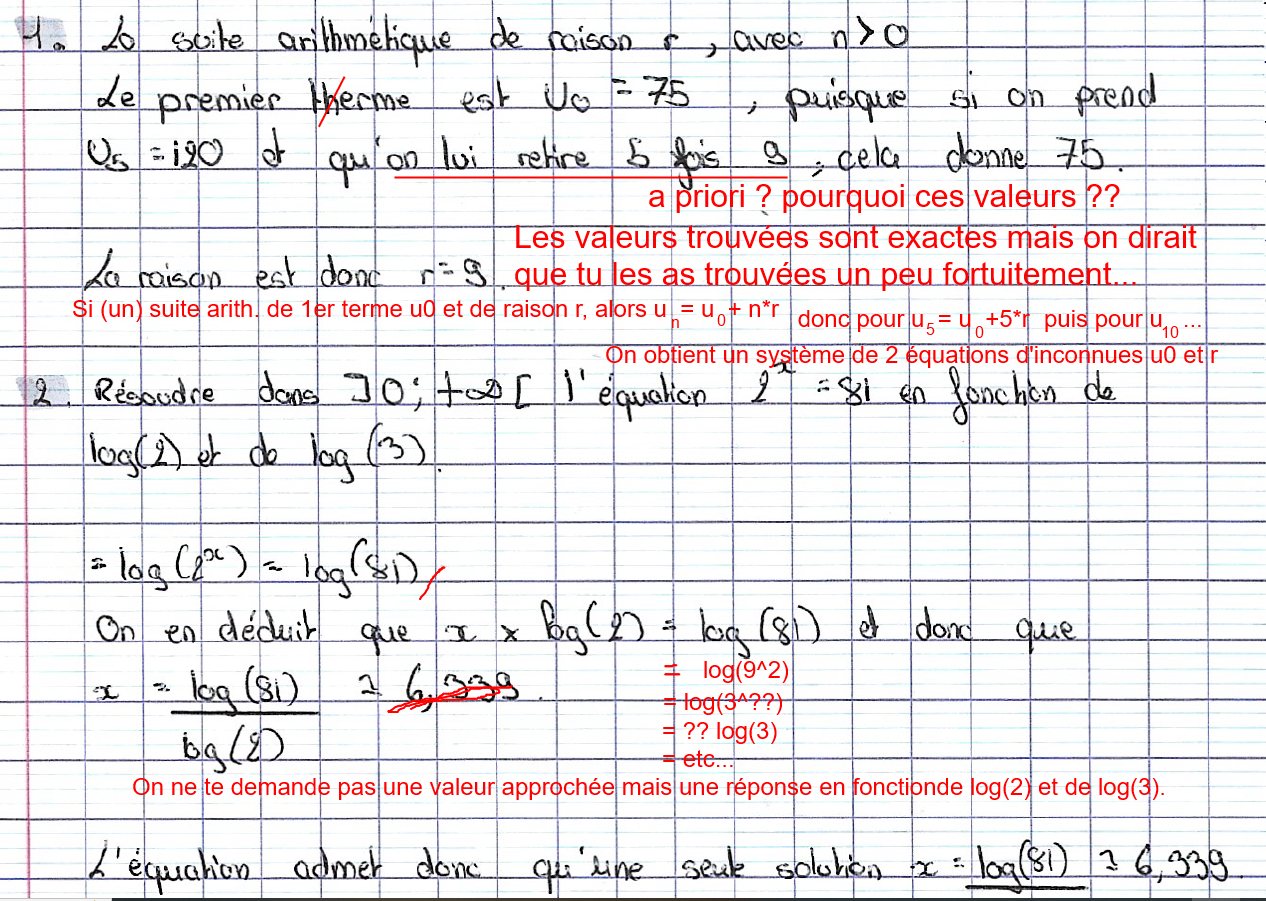 1. La suite arithmétique de raison r, avec n > 0
Le premier therme est U0 = 75, puisque si on prend
U5 = 120 et qu'on lui retire 5 fois 9, cela donne 75.
a priori ? pourquoi ces valeurs ??
Les valeurs trouvées sont exactes mais on dirait
La raison est donc r = 9. que tu les as trouvées un peu fortuitement...
Si (un) suite arith. de 1er terme u0 et de raison r, alors u n = u 0 + n*r donc pour u5 = u 0 +5*r puis pour u10 ...
On obtient un système de 2 équations d'inconnues u0 et r
2. Résoudre dans ]0; +∞[ l'équation 2^x = 81 en fonction de
log(2) et de log(3).
= log(2^x) = log(81)
On en déduit que x × log(2) = log(81) et donc que
= log(9^2)
x = log(81) ≃ 6,339.
= log(3^??)
= ?? log(3)
log(2)
= etc...
On ne te demande pas une valeur approchée mais une réponse en fonctionde log(2) et de log(3).
L'équation admet donc qu'une seule solution x = log(81) ≃ 6,339.